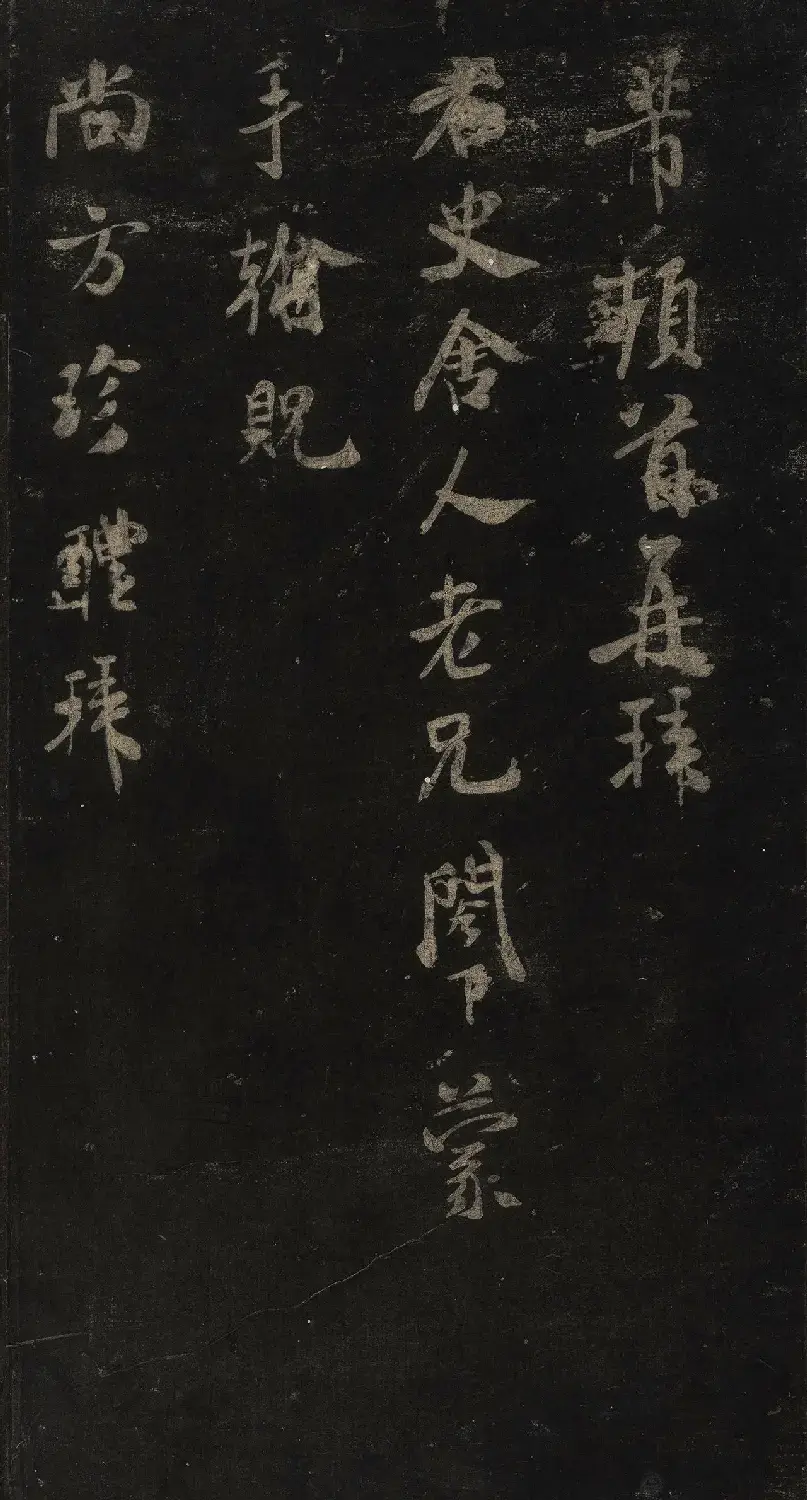 芾頓首再拜
右史舍人老兄閣下蒙
手翰貺
尚方珍醴拜